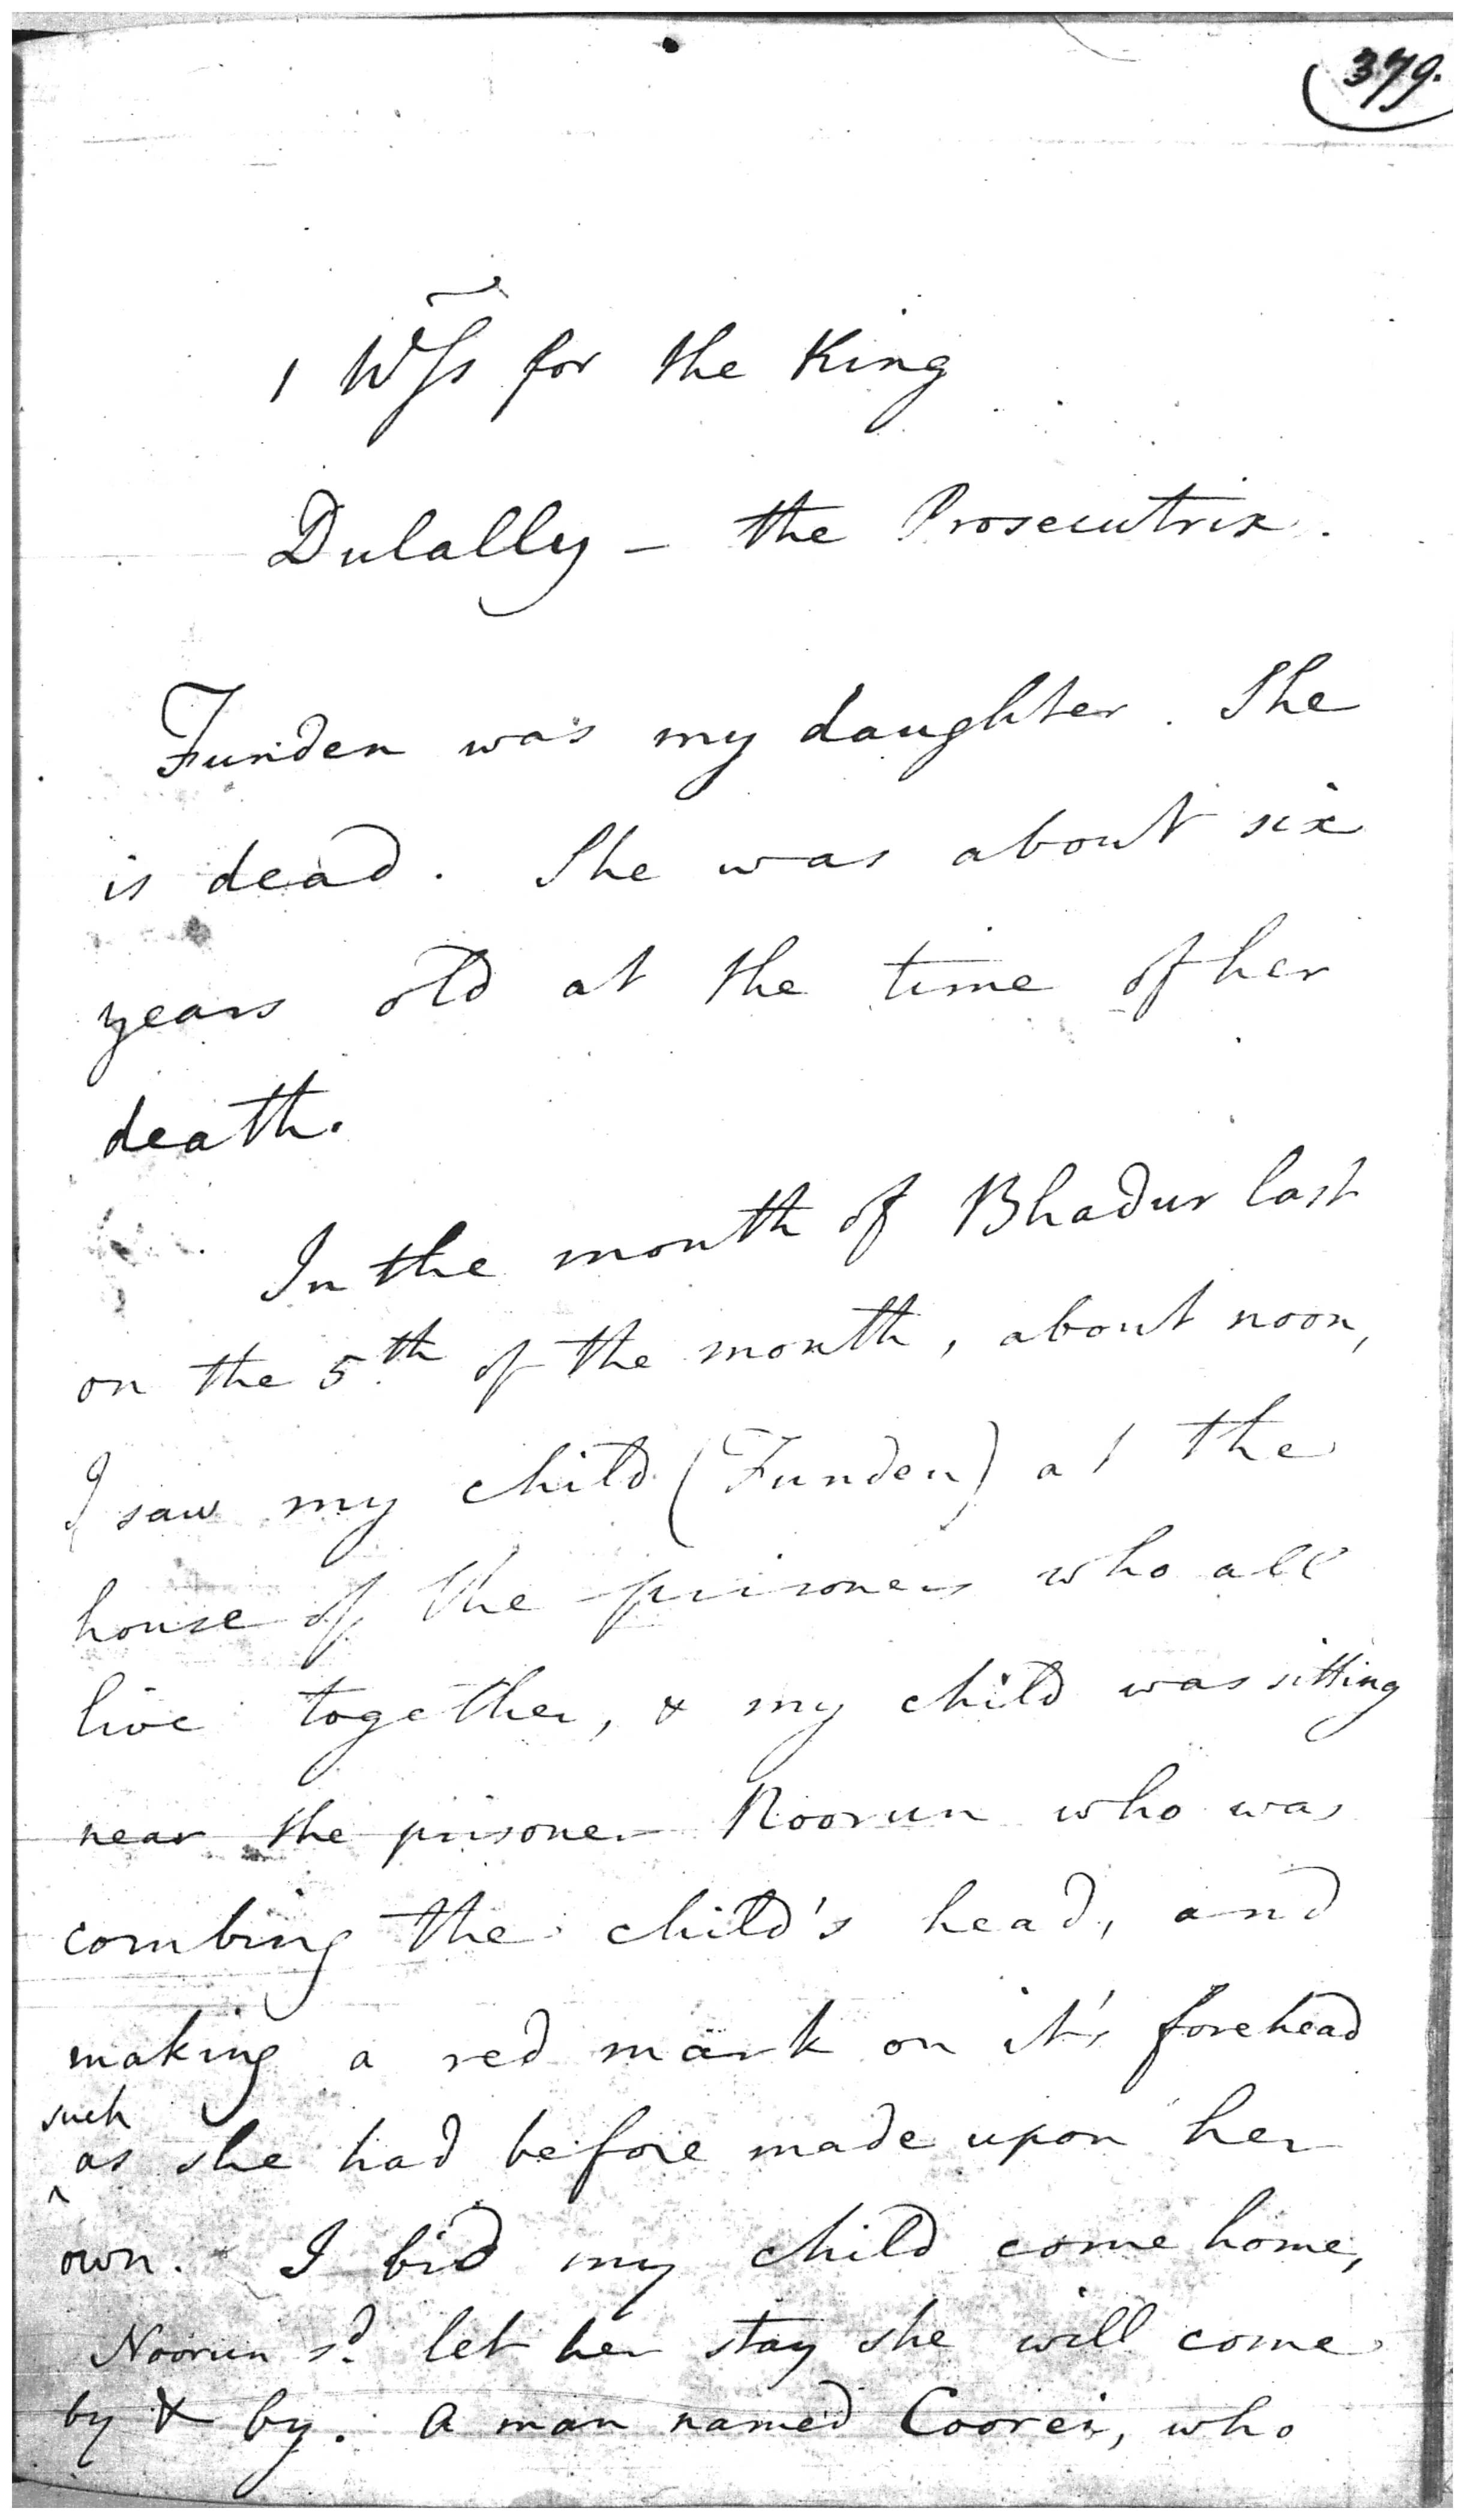 379.
1 Wss for the King
Dulally - the Prosecutrix.
Funden was my daughter. She
is dead. She was about six
years old at the time of her
death.
In the month of Bhadur last
on the 5th of the month, about noon,
I saw my child (Funden) at the
house of the prisoners who all
live together, & my child was sitting
near the prisoner Noorun who was
combing the child's head, and
making a red mark on it's forehead
such
as she had before made upon her
own. I bid my child come home,
Noorun sd. let her stay she will come
by & by. A man named Coorei, who